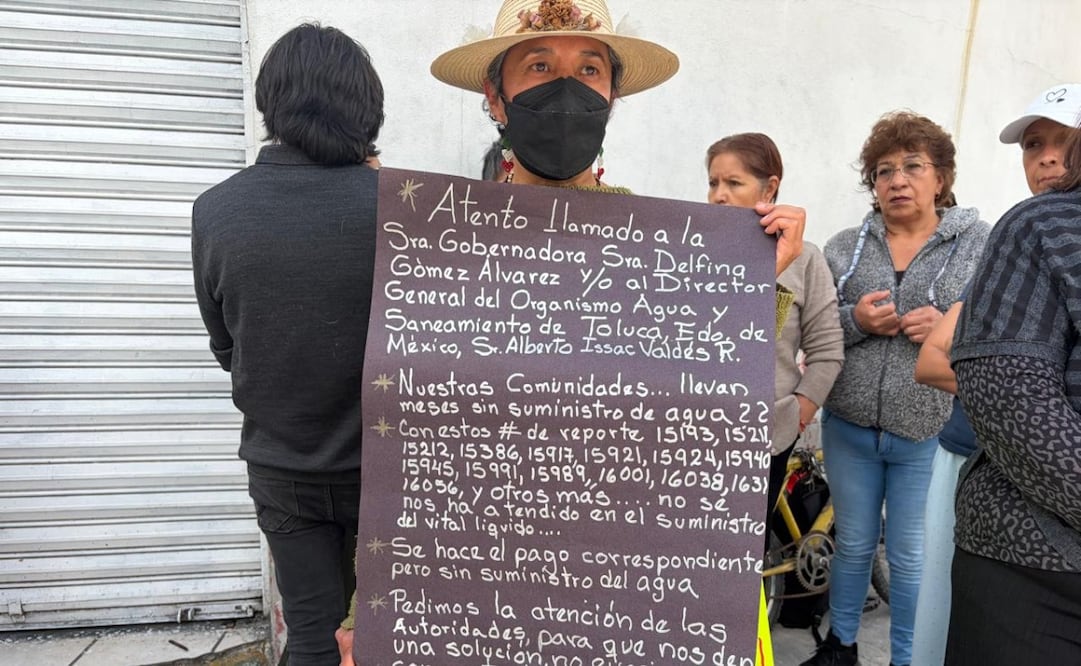 * Atento llamado a la
Sra. Gobernadora Sra. Delfina
Gòmez Álvarez y/o al Director
General del Organismo Agua y
Saneamiento de Toluca, Edo. de
México, Sr. Alberto Issac Valdés R.
* Nuestras Comunidades... llevan
meses sin suministro de agua ??
* Con estos # de reporte 15193, 15211,
15212, 15386, 15917, 15921, 15924, 15940
15945, 15991, 15989, 16001, 16038, 163
16056, y otros más.... no se
nos ha atendido en el suministro
del vital liquido....
* Se hace el pago correspondiente
pero sin suministro del agua
* Pedimos la atención de las
Autoridades, para que nos den
una solución, no